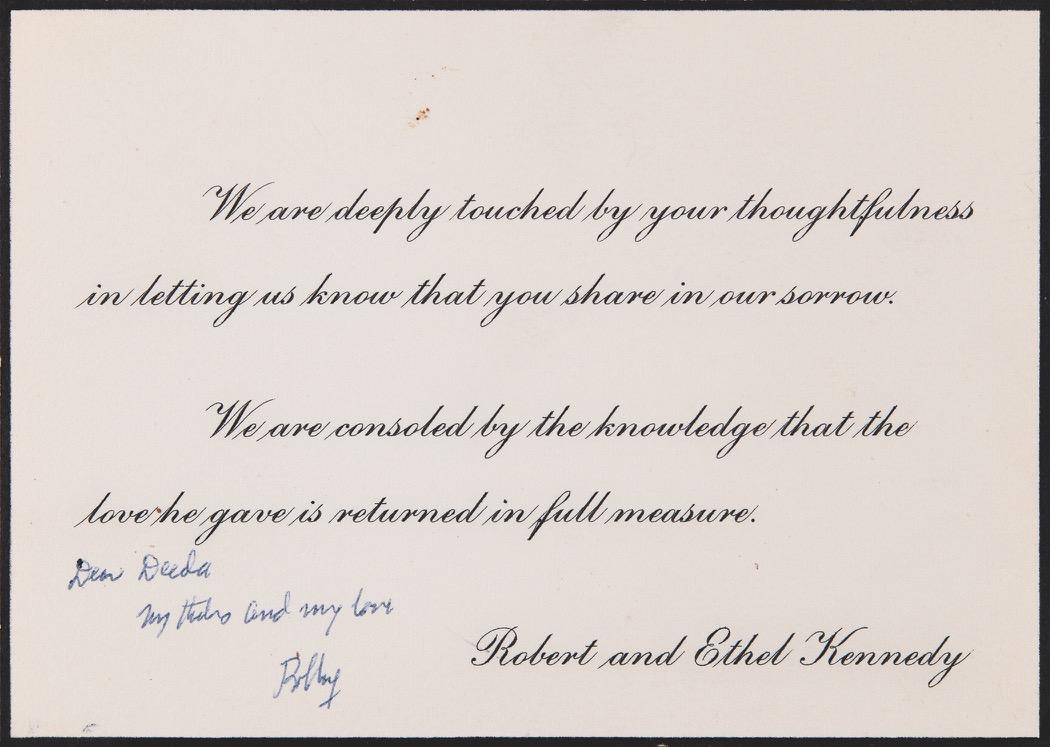 We are deeply touched by your thoughtfulness
in letting us know that you share in our sorrow.
We are consoled by the knowledge that the
love he gave is returned in full measure.
Dear Deeda
My thanks and my love
Bobby
Robert and Ethel Kennedy